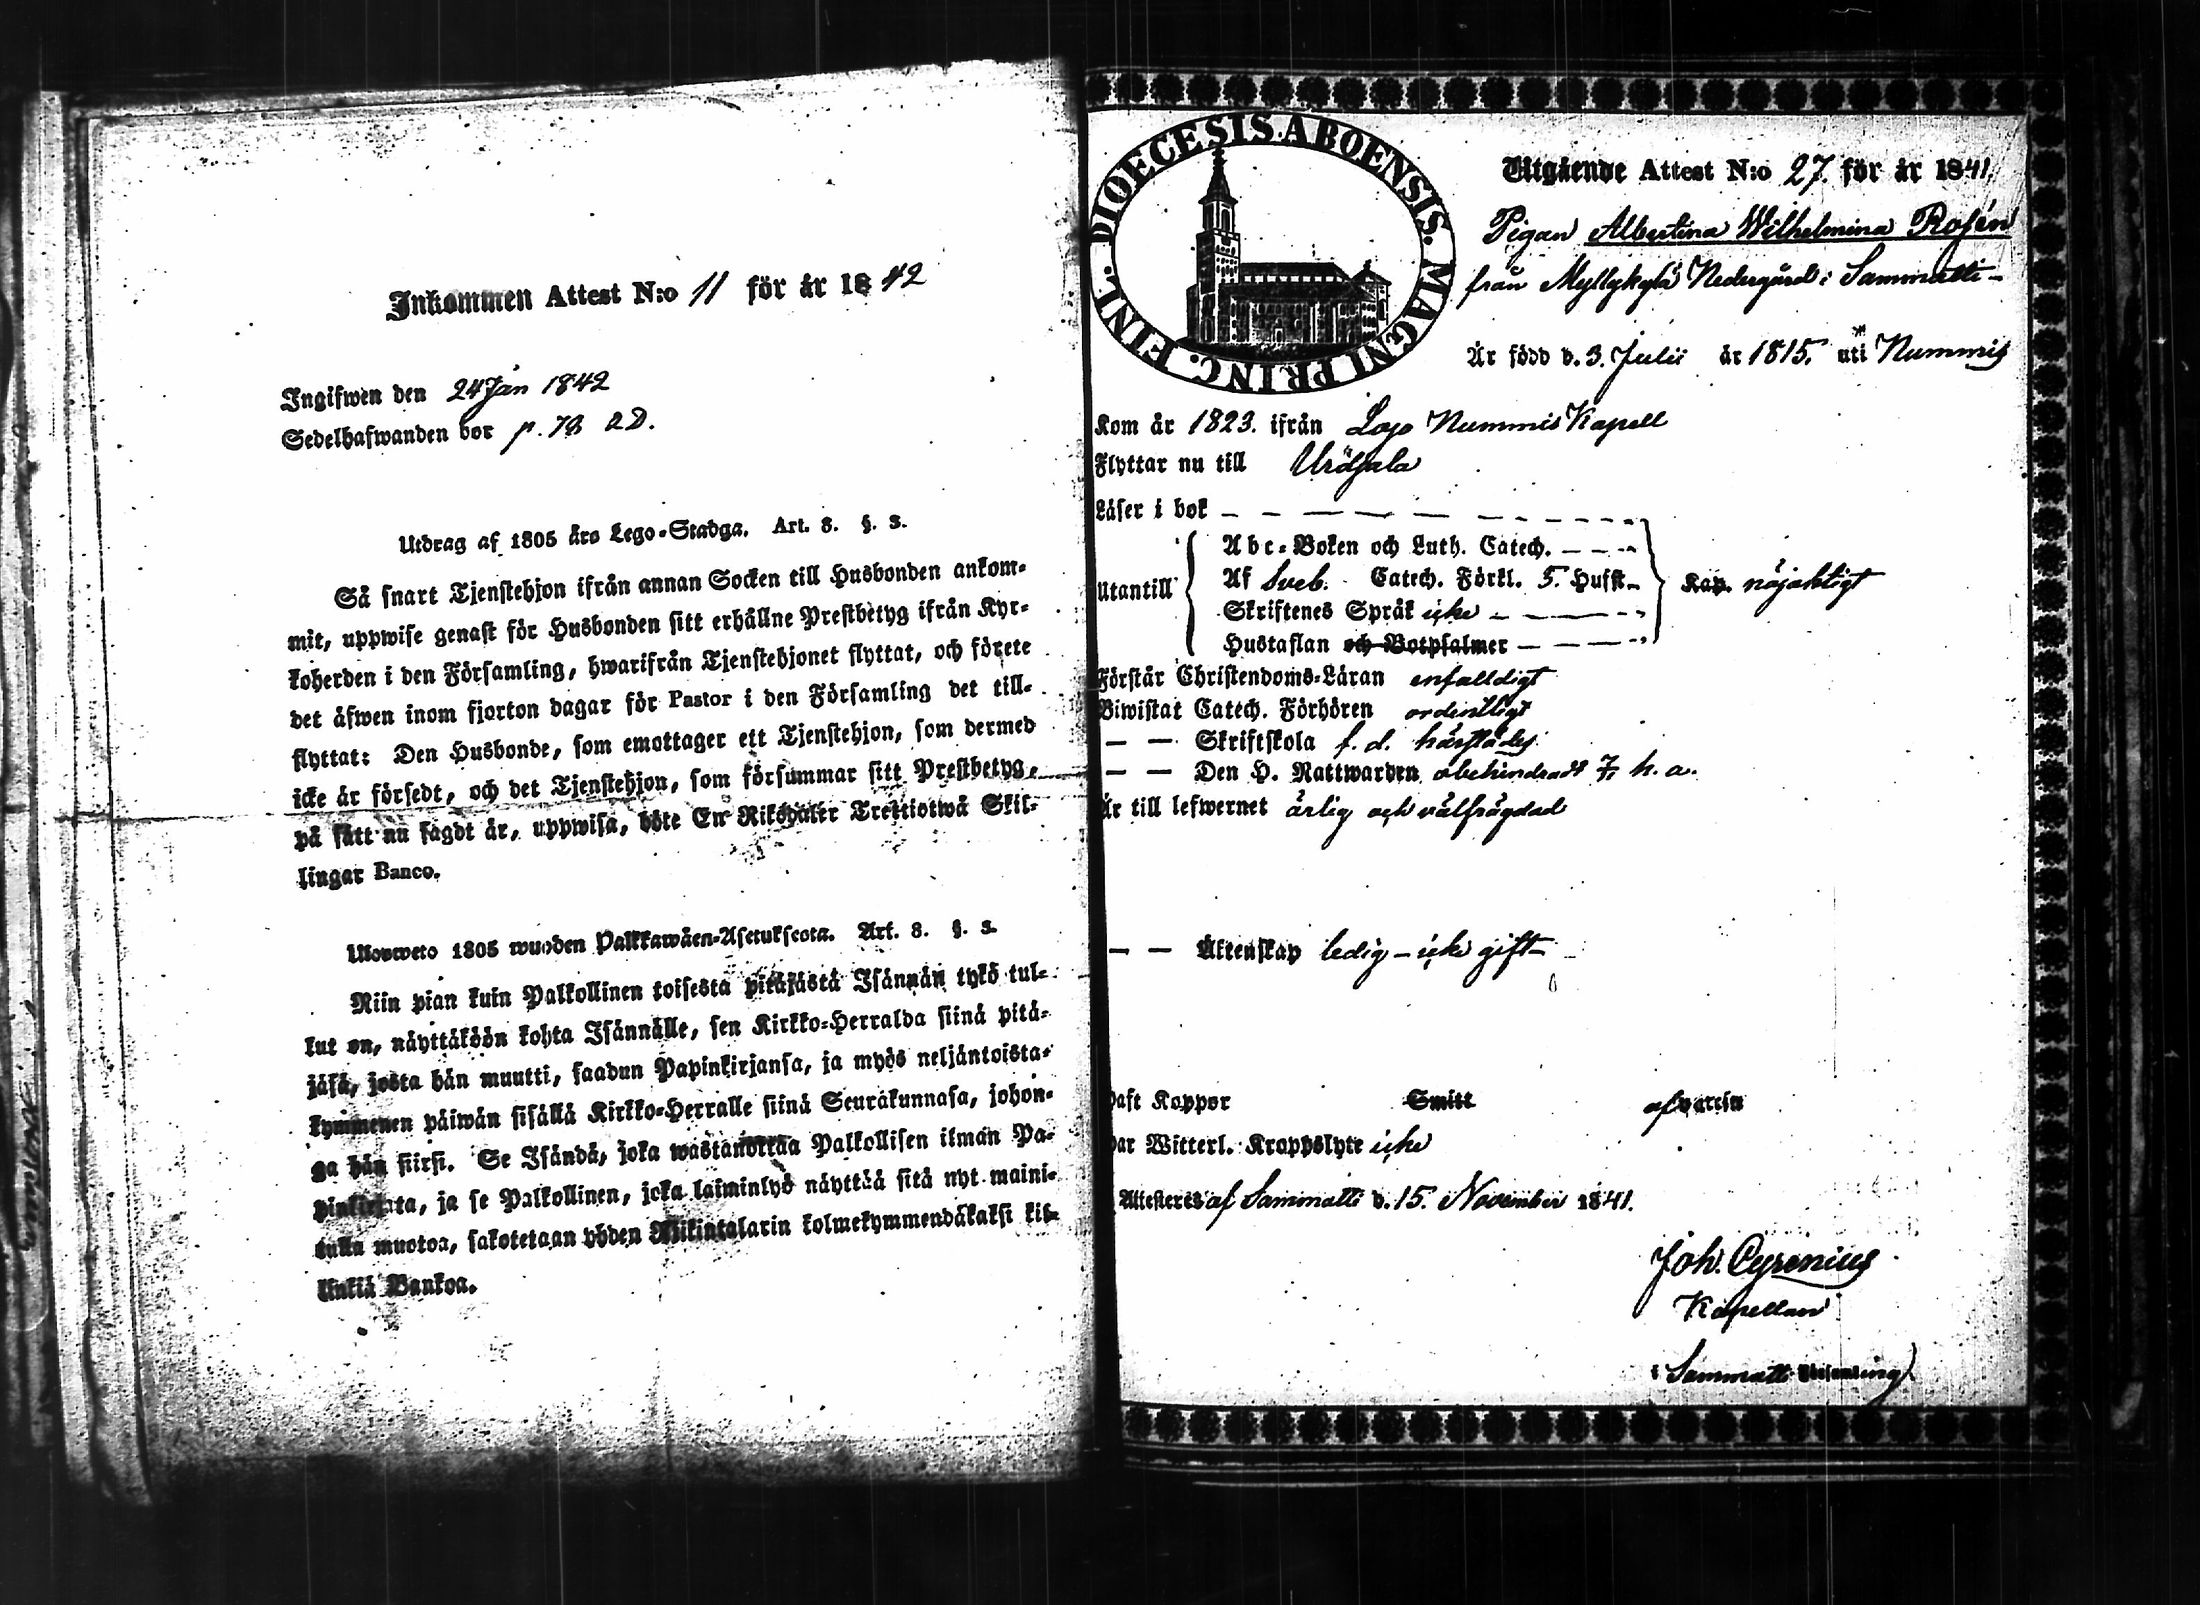 Inkommen Attest N:o 11 för år 1842
Ingifwen den 24 Jan 1842
Sedelhafwanden bor p. 78
Utdrag af 1805 års Lego-Stadga. Art. 8. §. 3.
Så snart Tjenstehjon ifrån annan Socken till Husbonden ankom-
mit, uppwise genast för Husbonden sitt erhållne Prestbetyg ifrån Kyr-
koherden i den Församling, hwarifrån Tjenstehjonet flyttat, och förete
det äfwen inom fjorton dagar för Pastor i den Församling det till-
flyttat: Den Husbonde, som emottager ett Tjenstehjon, som dermed
icke är försedt, och det Tjenstehjon, som försummar sitt Prestbetyg,
på sätt nu sagdt är, uppwisa, böte En Riksdaler Trettiotwå Skil-
lingar Banco.
Ulosweto 1805 wuoden Palkkawäen-Asetuksesta. Art. 8. §. 3.
Niin pian kuin Palkollinen toisesta pitäjästä Isännän tykö tul-
lut on, näyttäköön kohta Isännälle, sen Kirkko-Herralda siinä pitä-
jäsä, josta hän muutti, saadun Papinkirjansa, ja myös neljäntoista-
kymmenen päiwän sisällä Kirkko-Herralle siinä Seurakunnasa, johon-
ga hän siirsi. Se Isändä, joka wastanottaa Palkollisen ilman Pa-
pinkirjata, ja se Palkollinen, joka laiminlyö näyttää sitä nyt maini-
tulla muotoa, sakotetaan yhden Rikintalarin kolmekymmendäkaksi kil-
linkiä Bankoa.
DIOECESIS ABOENSIS. MAGNI PRINC. FINL.
Utgående Attest N:o 27. för år 1841.
Pigan Albertina Wilhelmina Rosén
från Myllykylä Nedergård i Sammatti
Är född d. 3. Julii år 1815. uti Nummis
Kom år 1823. ifrån Lojo Nummis Kapell
Flyttar nu till Urdjala
Läser i bok
Abc-Boken och Luth. Catech.
Utantill Af Sveb. Catech. Förkl. 5. Hufst. Kap. nöjaktigt
Skriftenes Språk icke
Hustaflan och Botpsalmer
Förstår Christendoms-Läran enfalldigt
Biwistat Catech. Förhören ordentligt
— — Skriftskola f. d. härstädes
— — Den H. Nattwarden obehindradt
Är till lefwernet ärlig och välfrägdad
— — Äktenskap ledig - icke gift
Haft Koppor Smitt
Har Witterl. Kroppslyte icke
Attesteres af Sammatti d. 15. November 1841.
Joh. Cyrenius
Kapellan
i Sammatti Församling